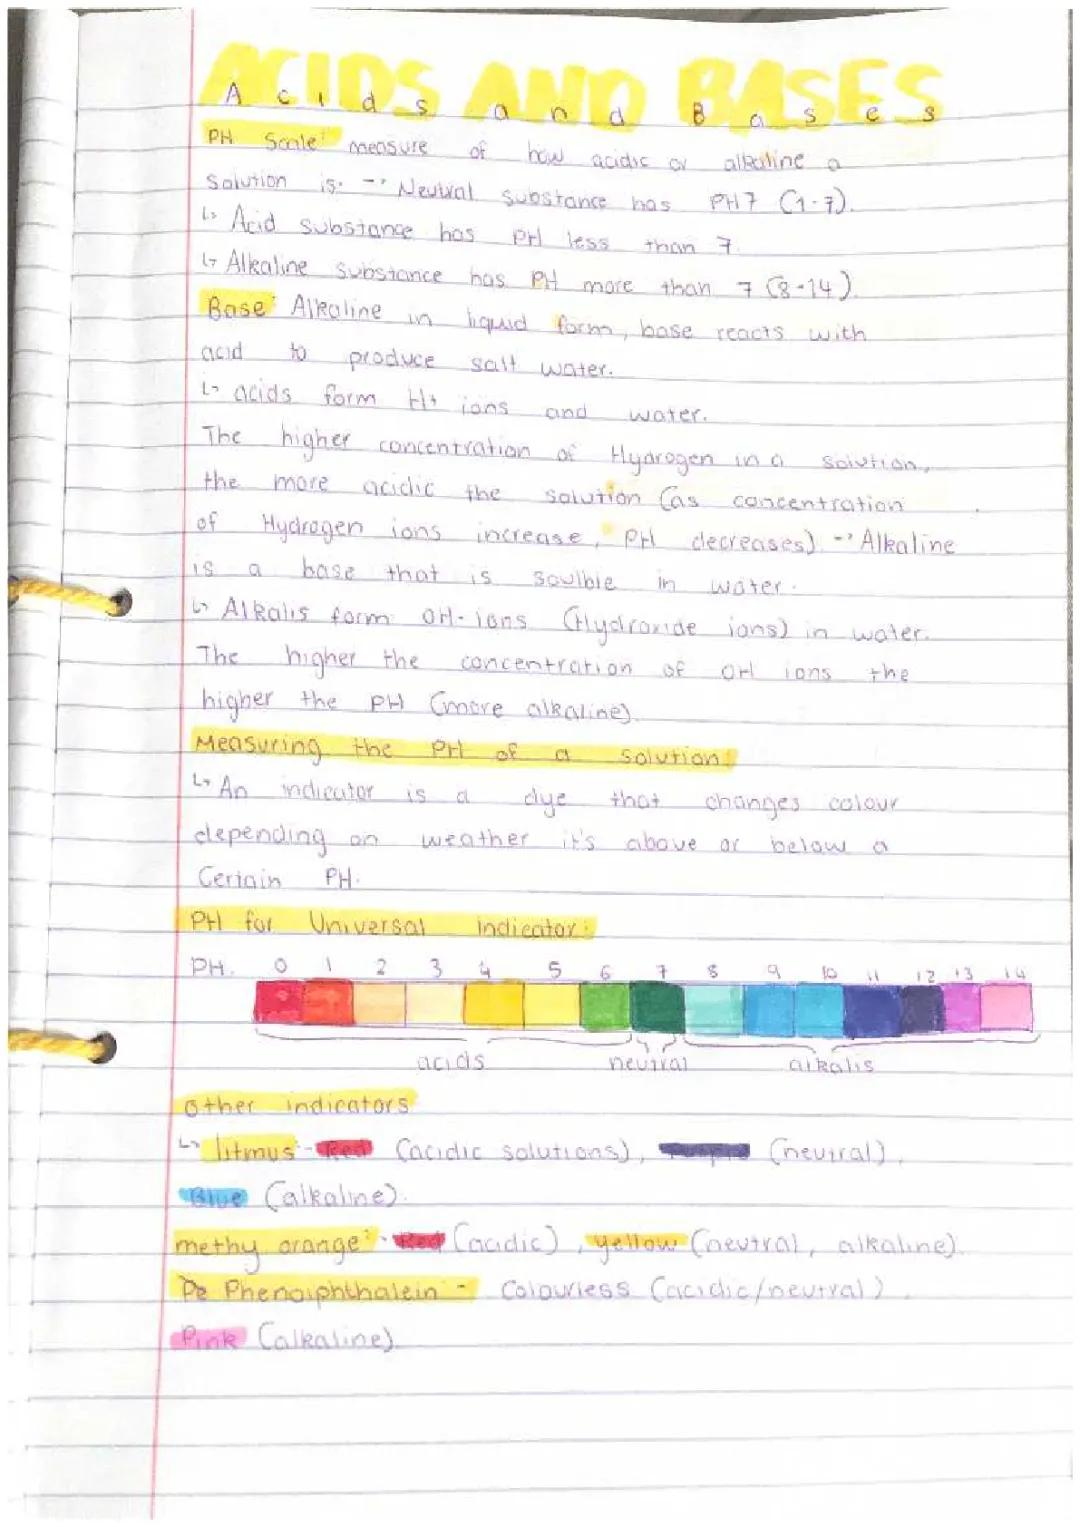 ACIDS AND BASES
Acids and Bases
PH Scale: measure of how acidic or alkaline a
solution is. -> Neutral substance has PH7 (1-7).
↳ Acid substance has PH less than 7.
↳ Alkaline substance has PH more than 7 (8-14).
Base: Alkaline in liquid form, base reacts with
acid to produce salt water.
↳ acids form H+ ions and water.
The higher concentration of Hydrogen in a solution,
the more acidic the solution (as concentration
of Hydrogen ions increase, PH decreases) -> Alkaline
is a base that is soulble in water.
↳ Alkalis form OH- ions (Hydroxide ions) in water.
The higher the concentration of OH ions the
higher the PH (more alkaline).
Measuring the PH of a solution:
↳ An indicator is a dye that changes colour
depending on weather it's above or below a
Certain PH.
PH for Universal indicator:
PH. 0 1 2 3 4 5 6 7 8 9 10 11 12 13 14
acids neutral alkalis
Other indicators
↳ litmus - Red (acidic solutions), Purple (neutral),
Blue (alkaline).
methy orange: - Red (acidic), yellow (neutral, alkaline).
Pe Phenolphthalein - Colourless (acidic/neutral)
Pink (alkaline).